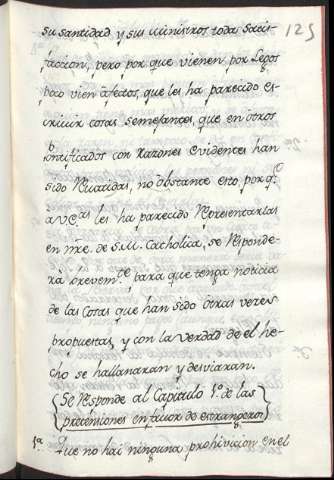 125
su santidad y sus ministros toda satis-
faccion, pero por que vienen por Legos
poco vien afectos, que les ha parecido es-
crivir cosas semejantes, que en otros
Pontificados con razones evidentes han
sido Reuatidas, no obstante esto por q.e
a VC.as les ha parecido Representarlas
en nre. de S.M. Catholica, se Responde-
rà brevem.te para que tenga noticia
de las cosas que han sido otras veces
propuestas, y con la verdad de el he-
cho se hallanaran y desviaran.
Se Responde al Capitulo 1.o de las
pretensiones en fauor de estrangeros
1.a Que no hai ninguna prohivicion en el